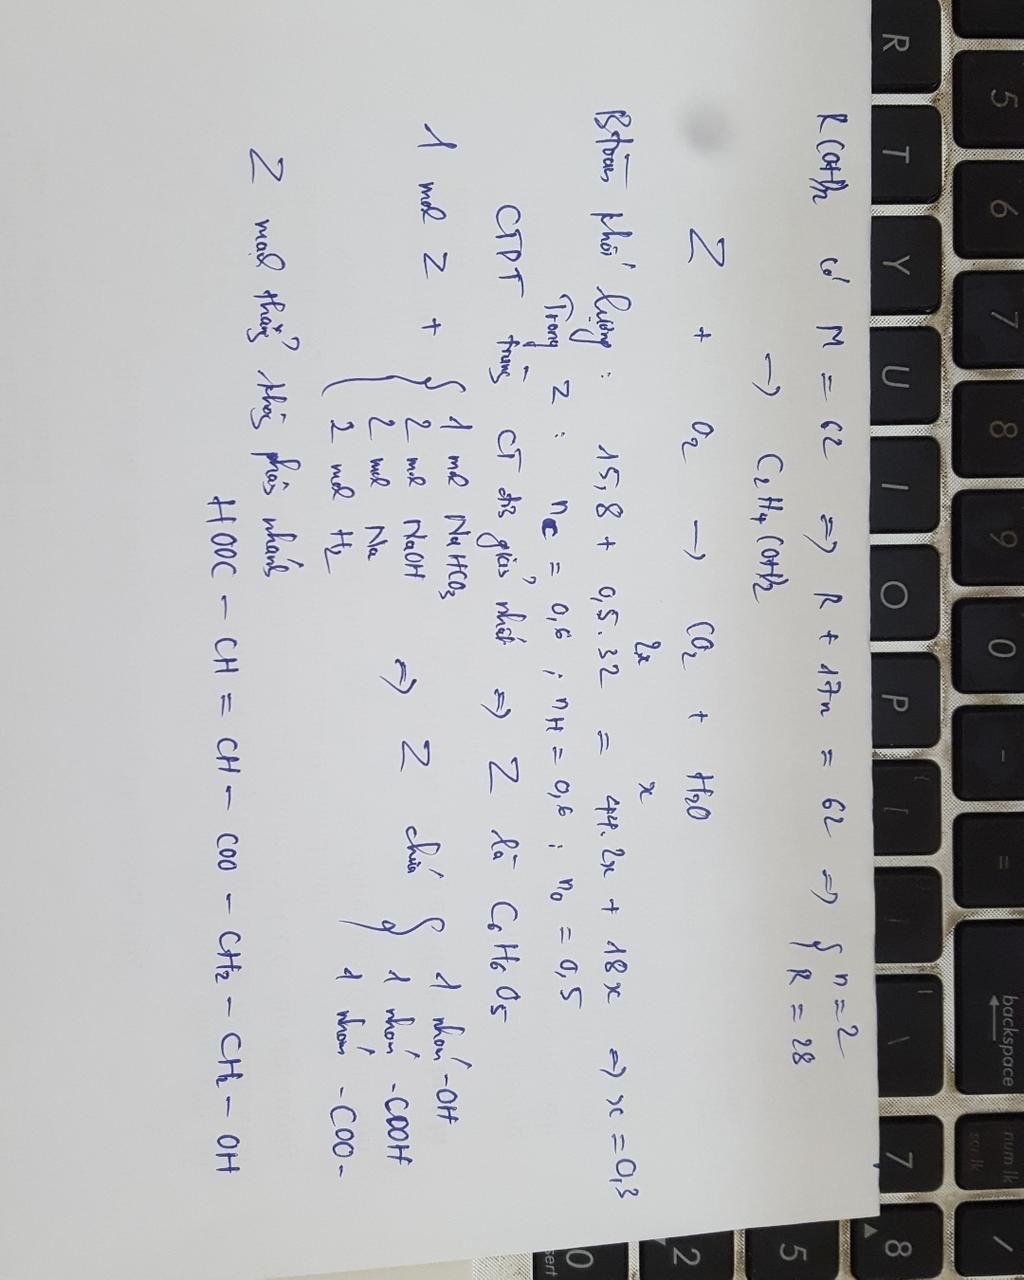 R(OH)2 có M = 62 => R + 17n = 62 => { n = 2
R = 28
→ C2H4(OH)2
Z + O2 → CO2 + H2O
2x x
Btoàn khối lượng : 15,8 + 0,5.32 = 44.2x + 18x => x = 0,3
Trong Z : nC = 0,6 ; nH = 0,6 ; nO = 0,5
CTPT trùng CT đơn giản nhất => Z là C6H6O5
1 mol Z + { 1 mol NaHCO3
2 mol NaOH
2 mol Na
2 mol H2
=> Z chứa { 1 nhóm -OH
1 nhóm -COOH
1 nhóm -COO-
Z mạch thẳng không phân nhánh
HOOC - CH = CH - COO - CH2 - CH2 - OH
5 6 7 8 9 0 - = backspace num lk scr lk /
R T Y U I O P { [ } ] | \ 7 8
5
2
0 sert